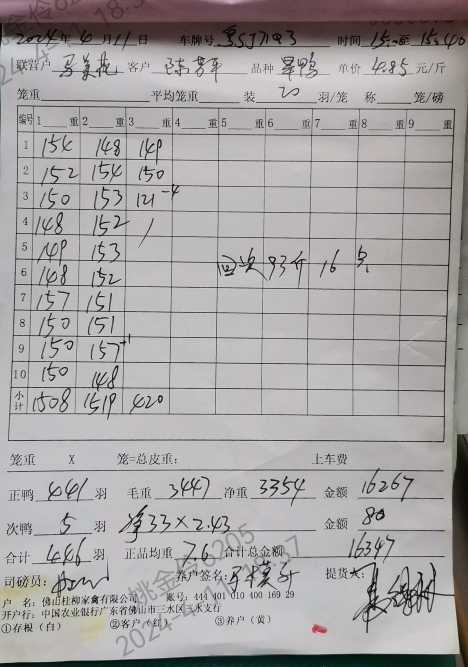 2024年4月11日 车牌号 时间 15:00至15:40
联营户 客户 陈 品种 旱鸭 单价 4.85 元/斤
笼重 平均笼重 装 20 羽/笼 称 笼/磅
编号 1 重 2 重 3 重 4 重 5 重 6 重 7 重 8 重 9 重
1 154 148 149
2 152 154 150
3 150 153 121-4
4 148 152 /
5 149 153
6 148 152
回皮93斤 16点
7 157 151
8 150 151
9 150 157+1
10 150 148
小计 1508 1519 420
笼重 X 笼=总皮重: 上车费
正鸭 441 羽 毛重 3447 净重 3354 金额 16267
次鸭 5 羽 净33×2.43 金额 80
合计 446 羽 正品均重 7.6 合计总金额 16347
司磅员: 养户签名: 提货人:
户 名: 佛山桂柳家禽有限公司 账号: 444 401 010 400 169 29
开户行: 中国农业银行广东省佛山市三水区 水支行
①存根(白) ②客户(红) ③养户(黄)